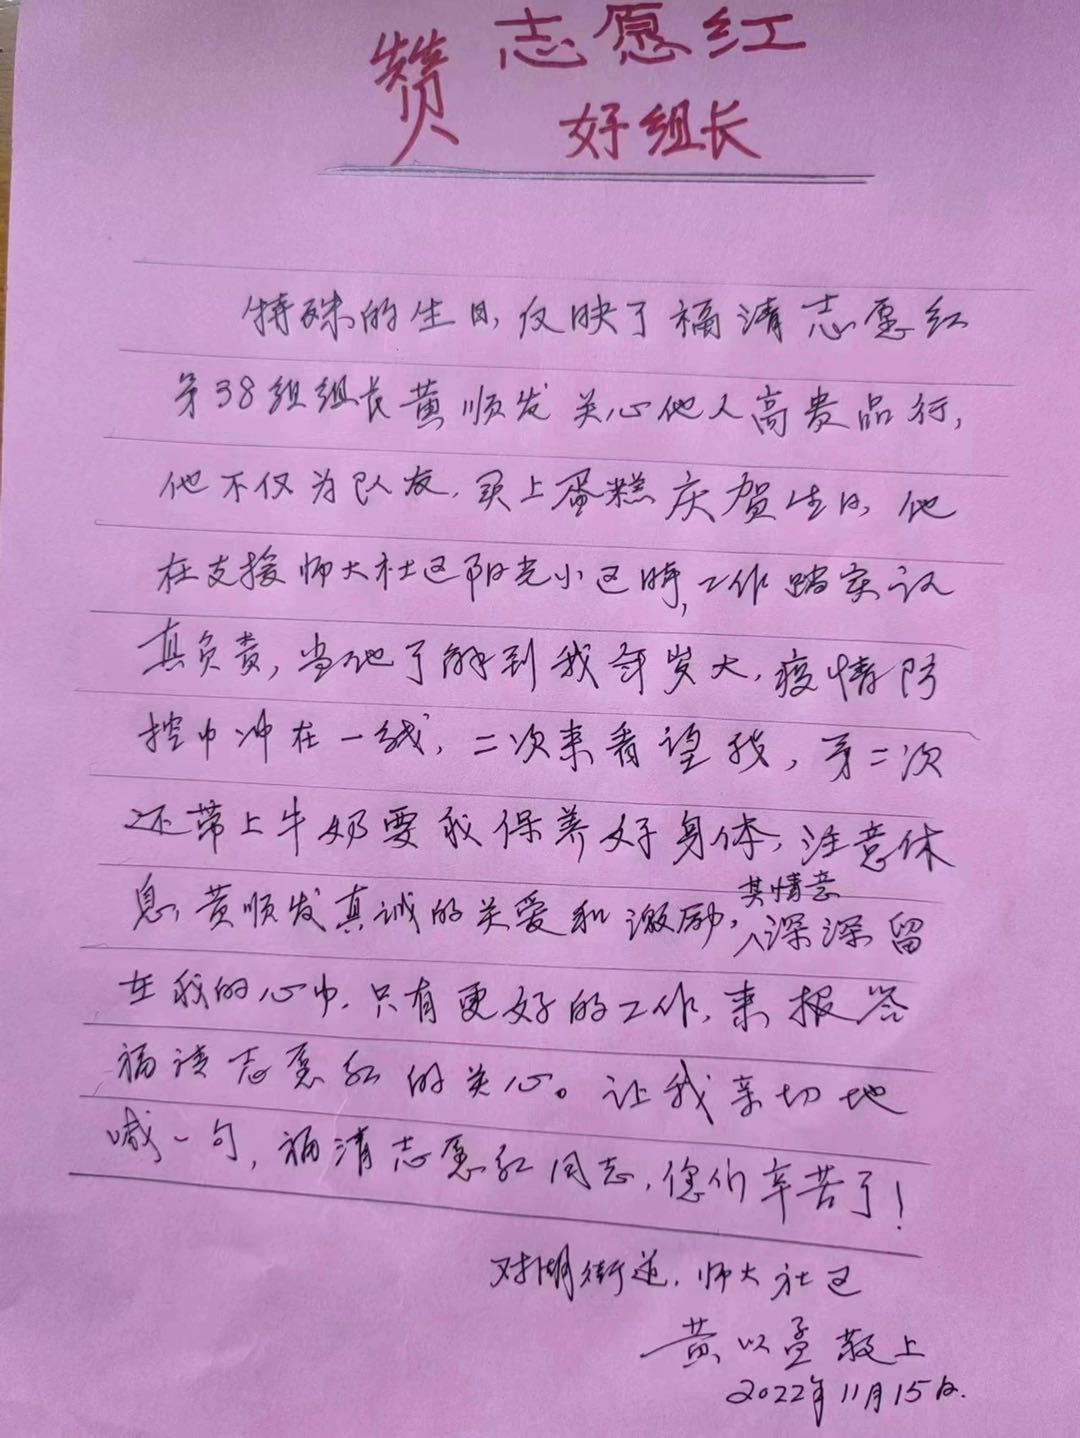 赞 志愿红
好组长
特殊的生日,反映了福清志愿红
第38组组长黄顺发关心他人高贵品行,
他不仅为队友,买上蛋糕庆贺生日,他
在支援师大社区阳光小区时,工作踏实认
真负责,当他了解到我年岁大,疫情防
控中冲在一线,二次来看望我,第二次
还带上牛奶要我保养好身体,注意休
息,黄顺发真诚的关爱和激励,其情意深深留
在我的心中,只有更好的工作,来报答
福清志愿红的关心。让我亲切地
喊一句,福清志愿红同志,您们辛苦了!
对湖街道,师大社区
黄以孟敬上
2022年11月15日.